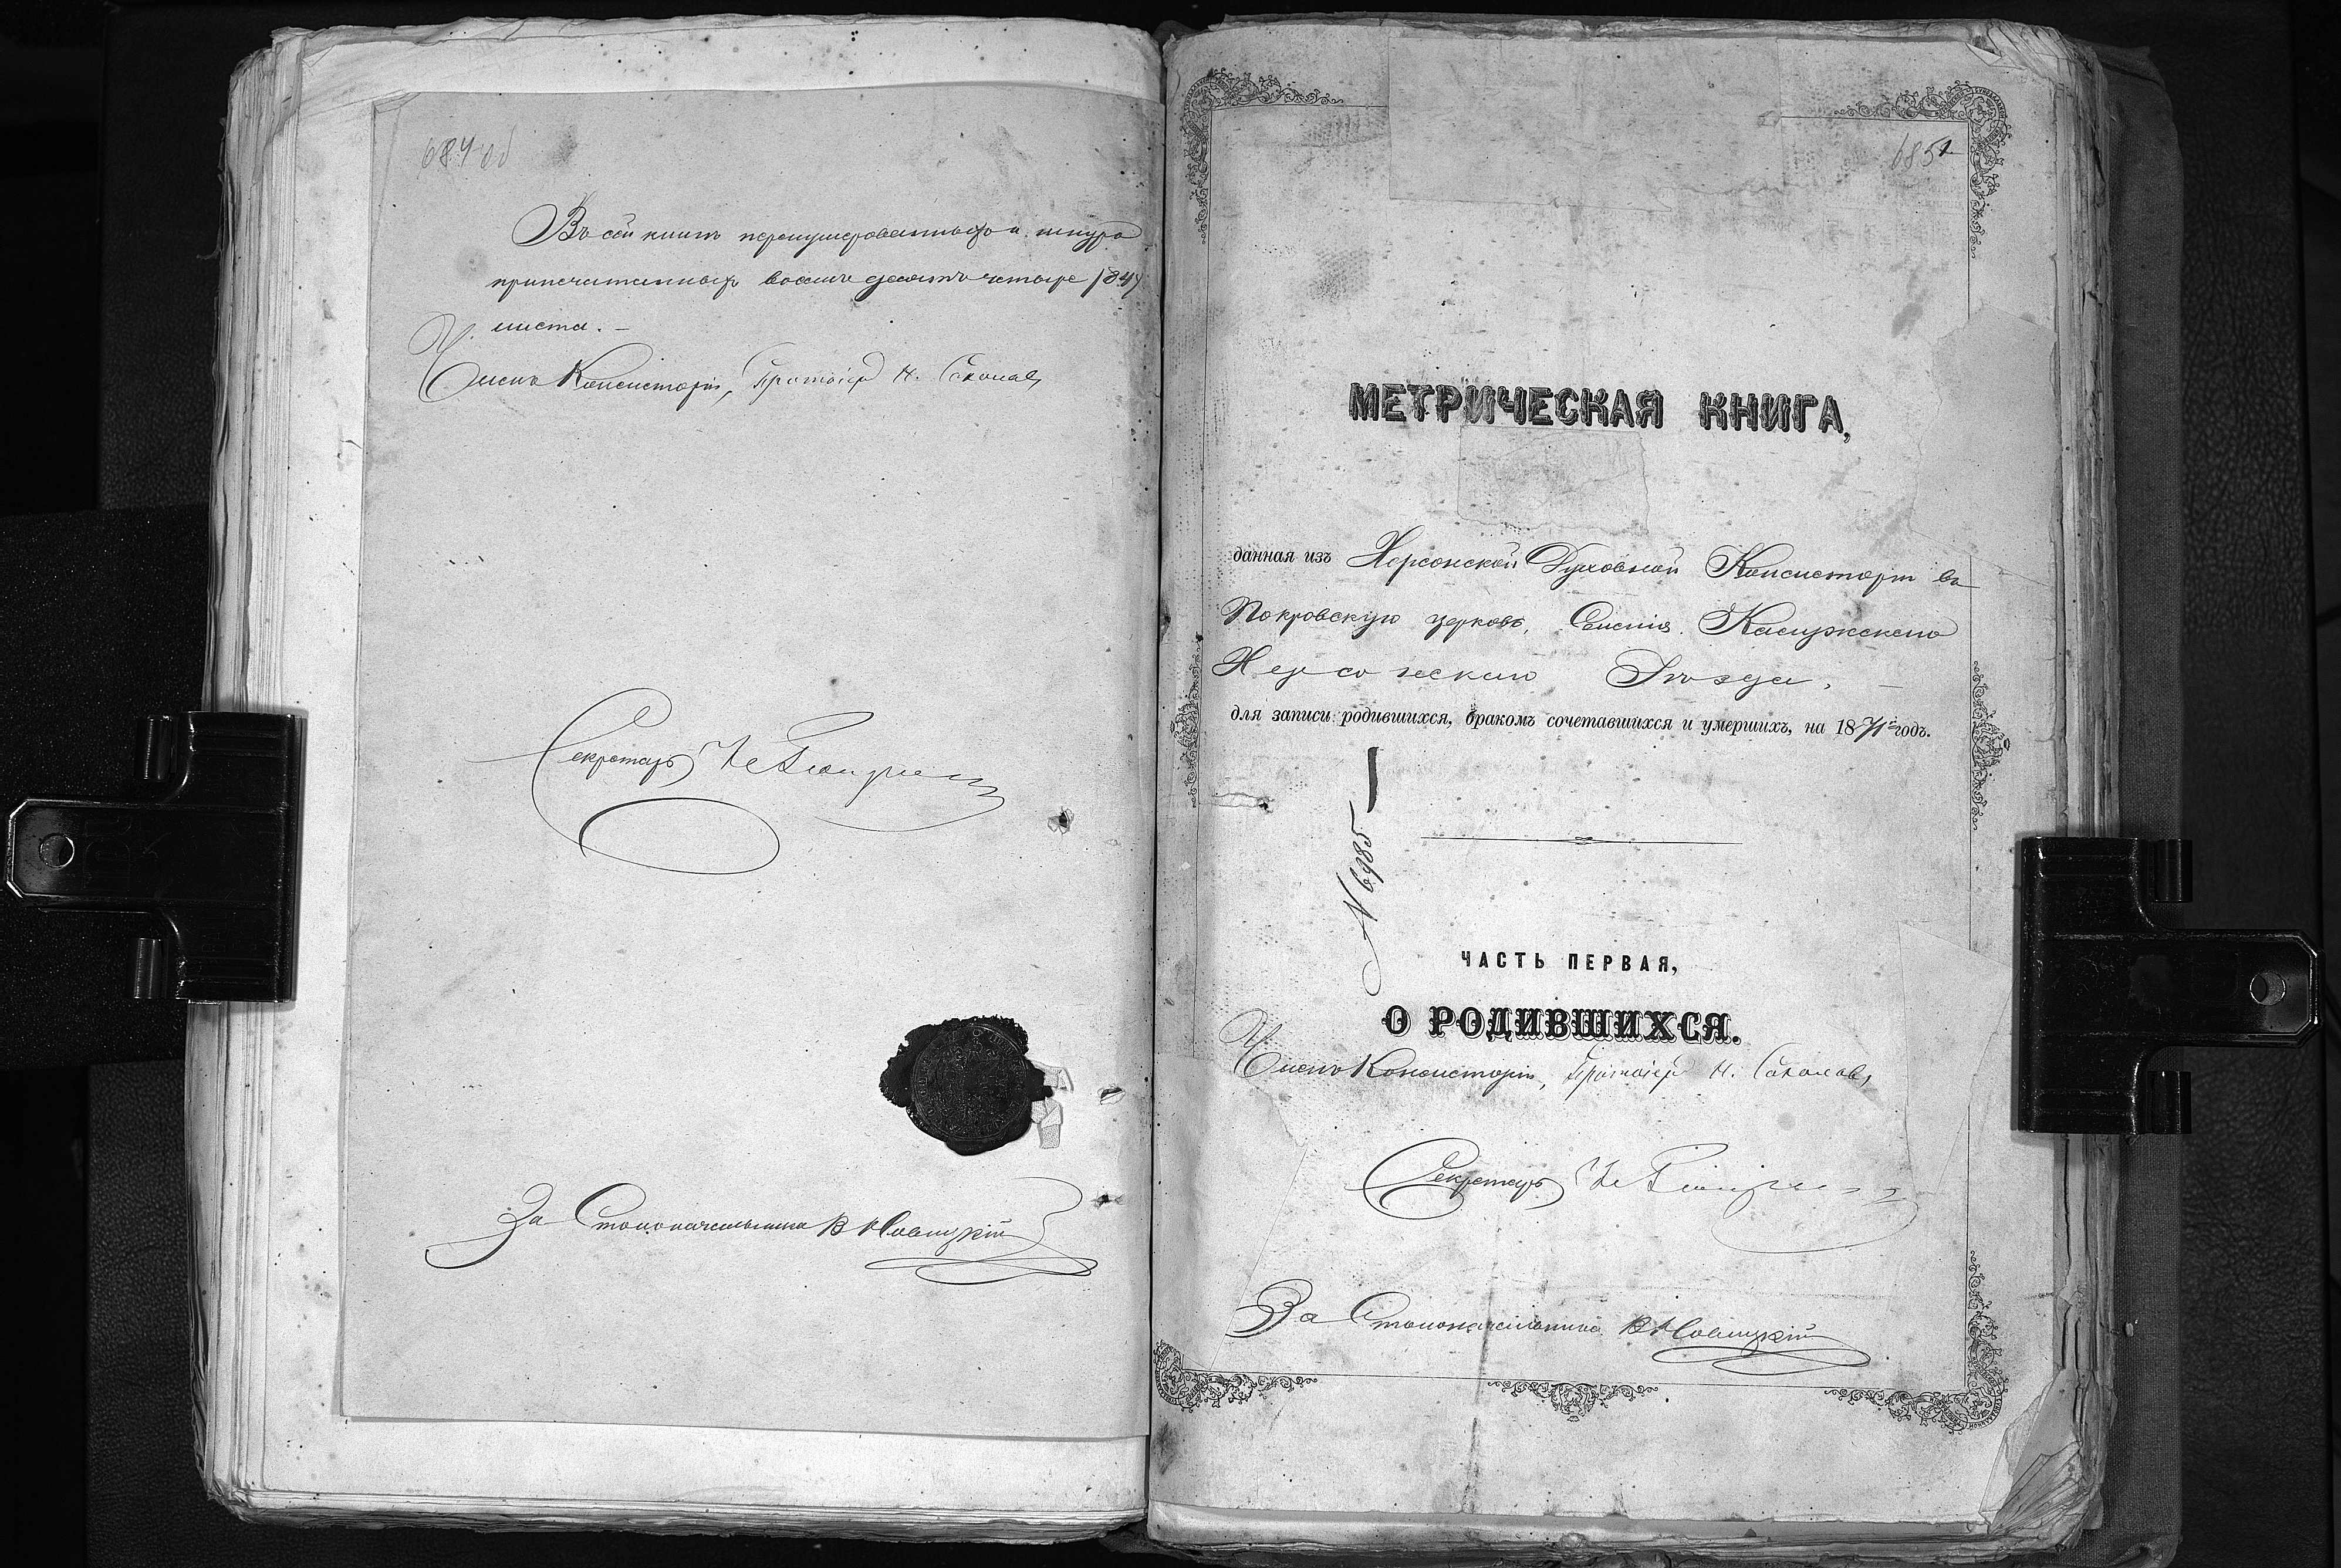 684 об
Въ сей книгѣ перенумерованныхъ и шнуро
припечатанныхъ восемьдесятъ четыре /84/
листа. —
Членъ Консисторіи, Протоіерей Н. Соколовъ
Секретарь
За Столоначальника В Новицкій
685 1
МЕТРИЧЕСКАЯ КНИГА,
данная изъ Херсонской Духовной Консисторіи въ
Покровскую церковь, Селенія Калужскаго
Херсонскаго Уѣзда. —
для записи родившихся, бракомъ сочетавшихся и умершихъ, на 1871 годъ.
№ 6985 —
ЧАСТЬ ПЕРВАЯ,
О РОДИВШИХСЯ.
Членъ Консисторіи, Протоіерей Н. Соколовъ
Секретарь
За Столоначальника В Новицкій